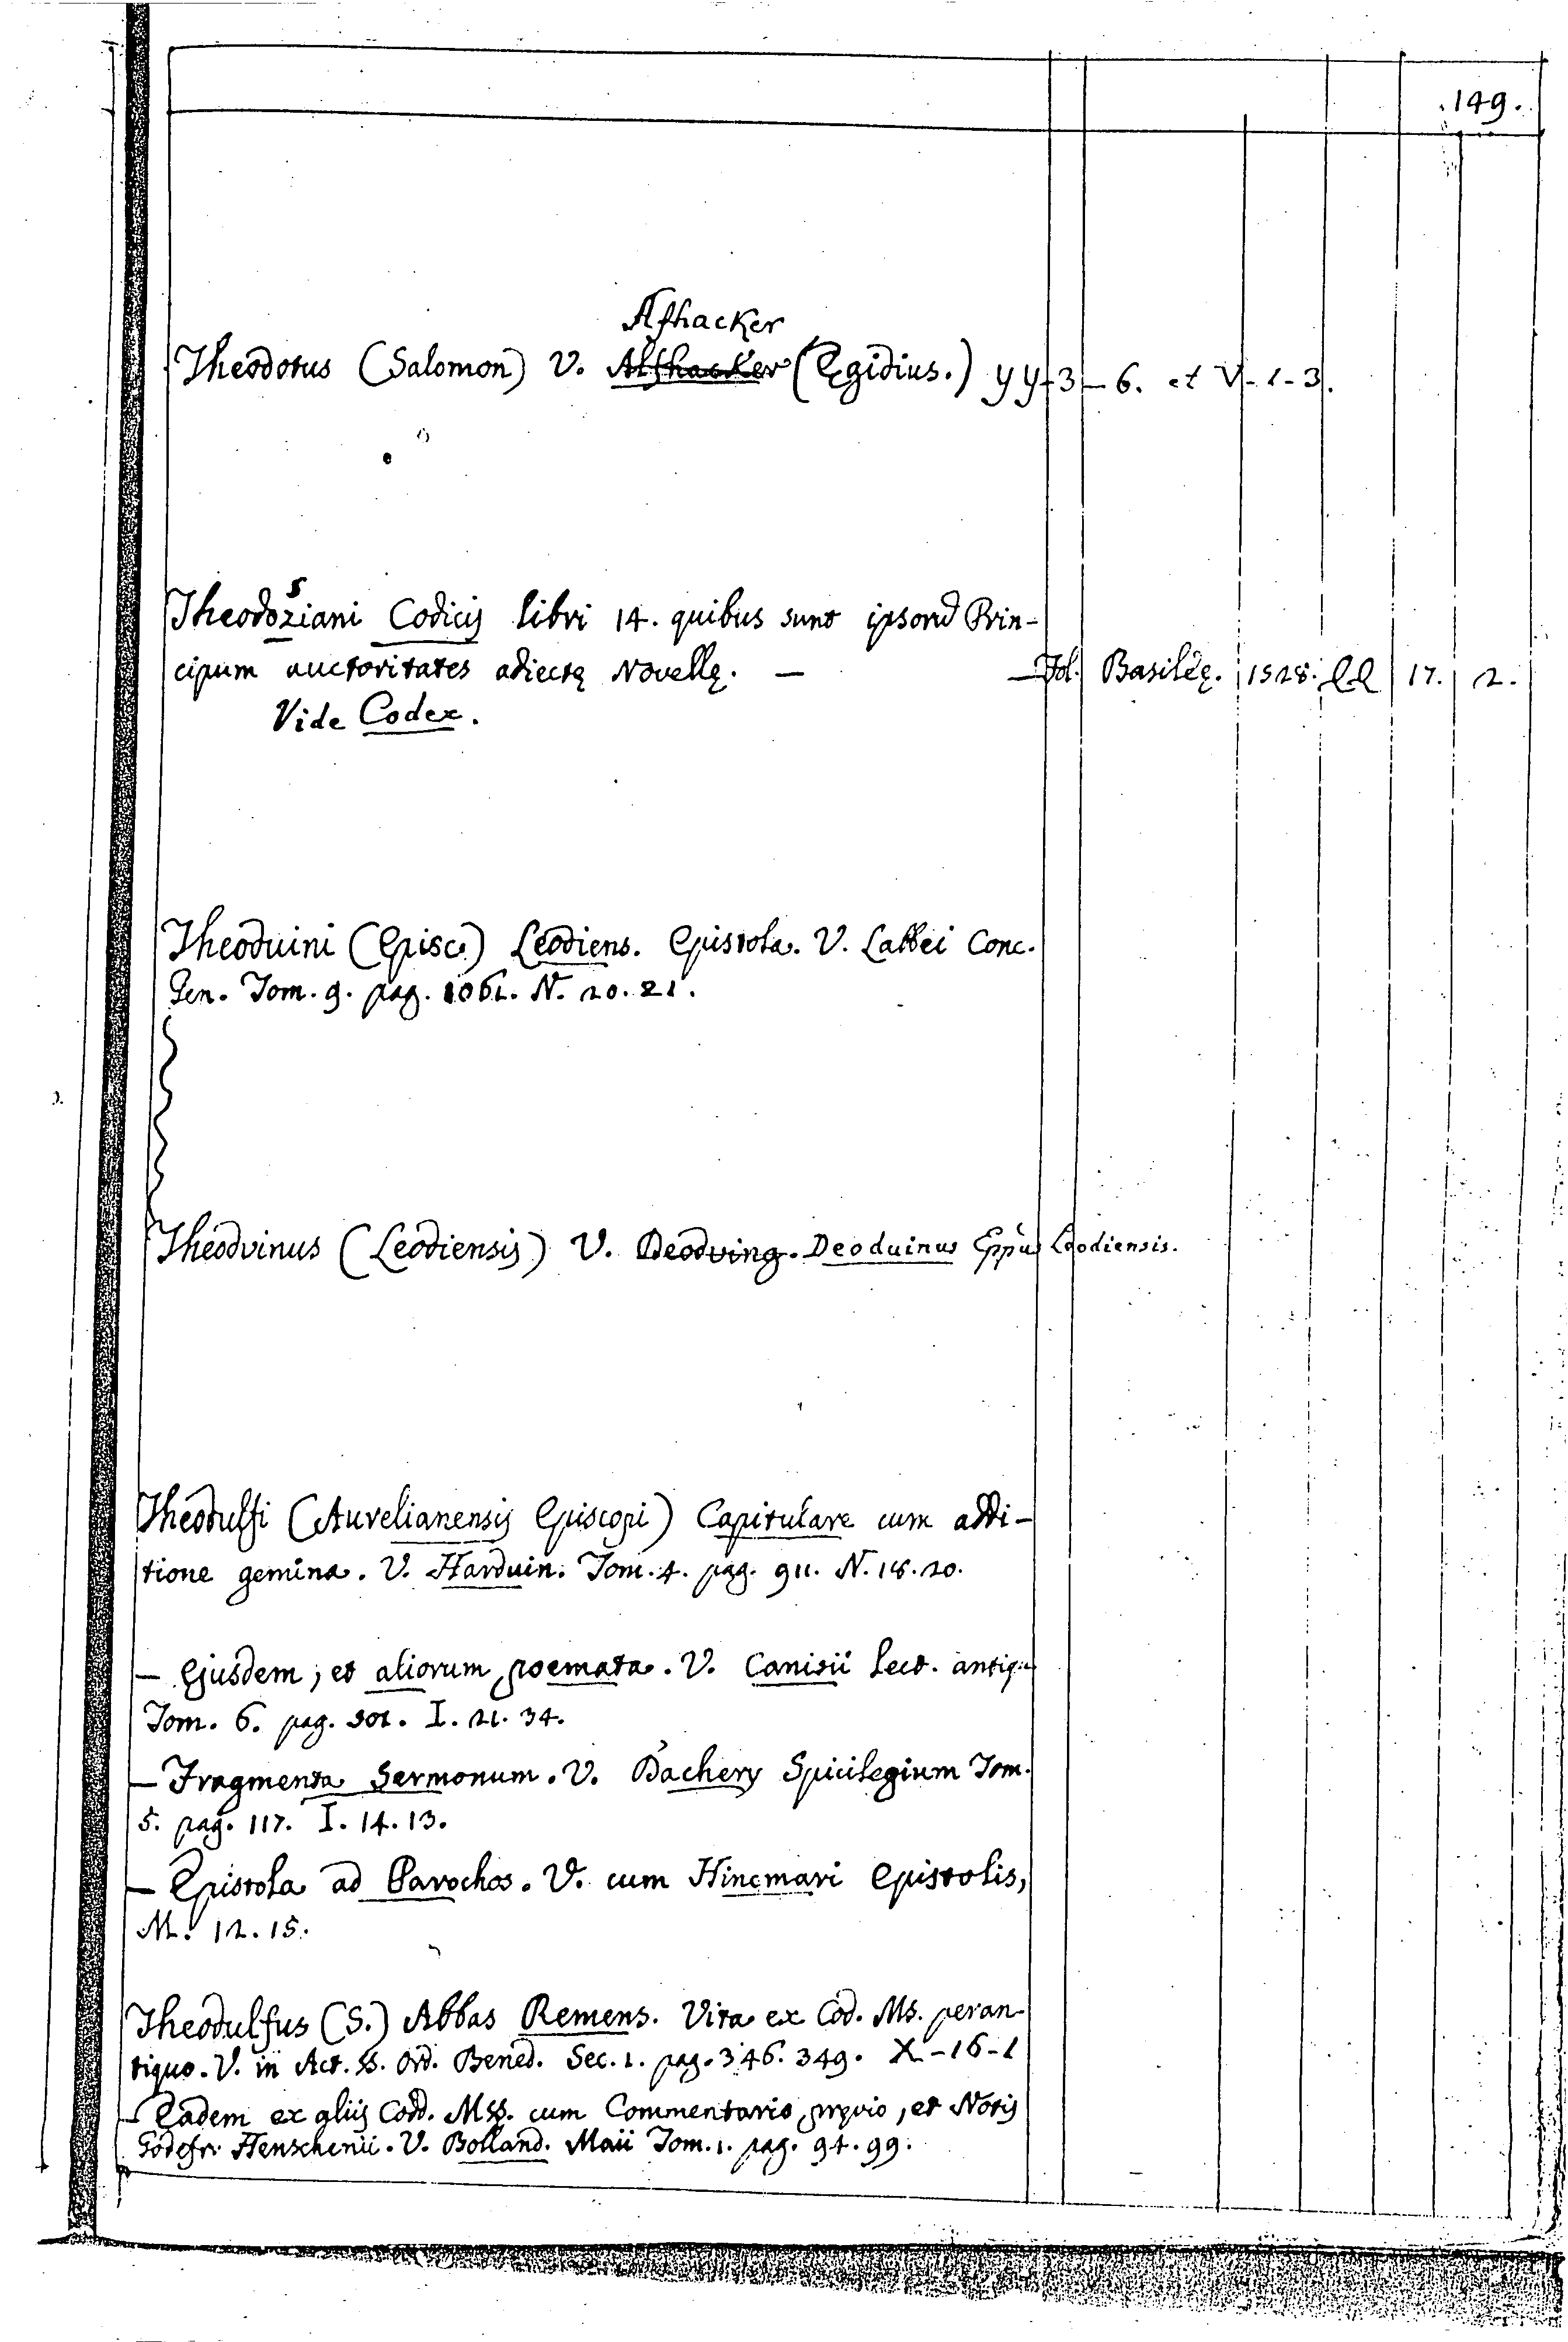 149.
Afhacker
Theodotus (Salomon) V. Alfhacker (Egidius.) yy-3-6. et V-1-3.
s
Theodoziani Codicis libri 14. quibus sunt ipsorū Prin-
cipum auctoritates adiectę Novellę. — — Fol. Basileę. 1528. 17. 2.
Vide Codex.
Theoduini (Episc.) Leodiens. Epistola. V. Labbei Conc.
Gen. Tom. 9. pag. 1061. N. 20. 21.
Theodvinus (Leodiensis) V. Deodving. Deoduinus Eppus Leodiensis.
Theodulfi (Aurelianensis Episcopi) Capitulare cum addi-
tione gemina. V. Harduin. Tom. 4. pag. 911. N. 18. 20.
— Ejusdem, et aliorum poemata. V. Canisii Lect. antiq.
Tom. 6. pag. 501. I. 21. 34.
— Fragmenta Sermonum. V. Dachery Spicilegium Tom.
5. pag. 117. I. 14. 13.
— Epistola ad Parochos. V. cum Hincmari Epistolis,
M. 12. 15.
Theodulfus (S.) Abbas Remens. Vita ex Cod. Ms. peran-
tiquo. V. in Act. SS. Ord. Bened. Sec. 1. pag. 346. 349. X-16-1
— Eadem ex aliis Codd. Mss. cum Commentario pręvio, et Notis
Godefr. Henschenii. V. Bolland. Maii Tom. 1. pag. 94. 99.